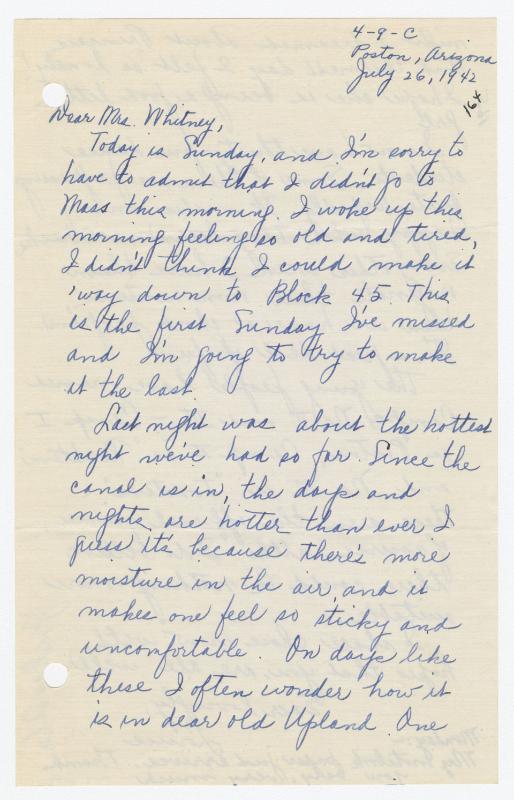 4-9-C
Poston, Arizona
July 26, 1942
164
Dear Mrs. Whitney,
Today is Sunday, and I'm sorry to
have to admit that I didn't go to
Mass this morning. I woke up this
morning feeling so old and tired,
I didn't think I could make it
'way down to Block 45. This
is the first Sunday I've missed
and I'm going to try to make
it the last.
Last night was about the hottest
night we've had so far. Since the
canal is in, the days and
nights are hotter than ever I
guess it's because there's more
moisture in the air, and it
makes one feel so sticky and
uncomfortable. On days like
these I often wonder how it
is in dear old Upland. One